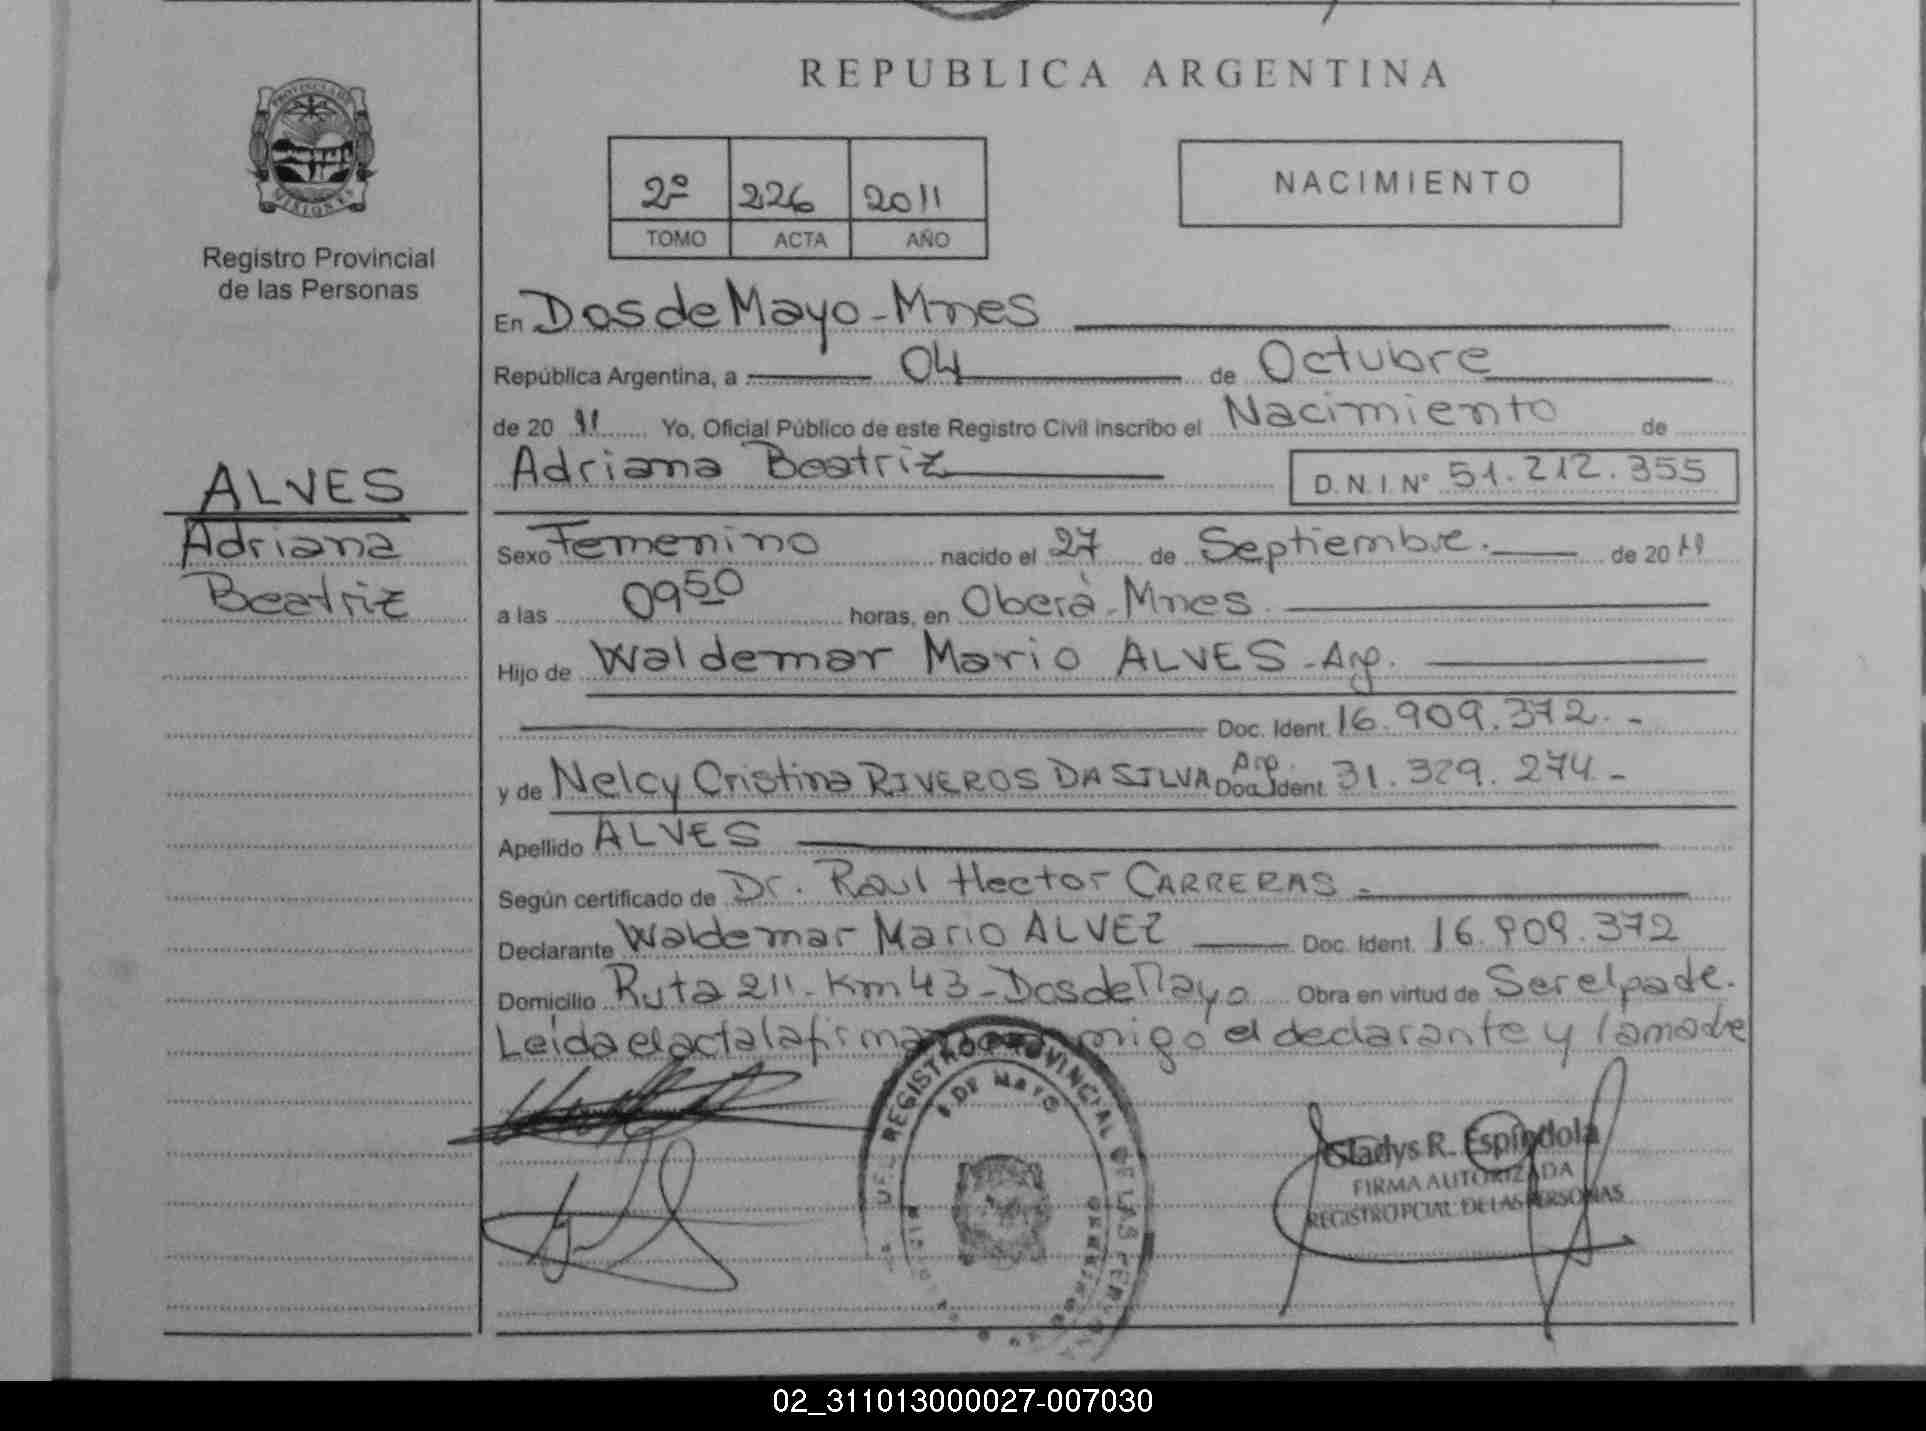 REPUBLICA ARGENTINA
PROVINCIA DE MISIONES
Registro Provincial
de las Personas
2º 226 2011
TOMO ACTA AÑO
NACIMIENTO
En Dos de Mayo - Mnes
República Argentina, a 04 de Octubre
de 20 11 Yo, Oficial Público de este Registro Civil inscribo el Nacimiento de
Adriana Beatriz D.N.I. Nº 51.212.355
ALVES
Adriana
Beatriz
Sexo Femenino nacido el 27 de Septiembre. de 20 11
a las 09 50 horas, en Oberá - Mnes
Hijo de Waldemar Mario ALVES - Arg.
Doc. Ident. 16.909.372. -
y de Nelcy Cristina RIVEROS DA SILVA Arg. Doc. Ident. 31.329.274 -
Apellido ALVES
Según certificado de Dr. Raul Hector CARRERAS -
Declarante Waldemar Mario ALVEZ Doc. Ident. 16.909.372
Domicilio Ruta 211 - Km 43 - Dos de Mayo Obra en virtud de Ser el padre.
Leída el acta la firman conmigo el declarante y la madre
REGISTRO PROVINCIAL DE LAS PERSONAS
2 DE MAYO
Gladys R. Espíndola
FIRMA AUTORIZADA
REGISTRO PCIAL DE LAS PERSONAS
02_311013000027-007030